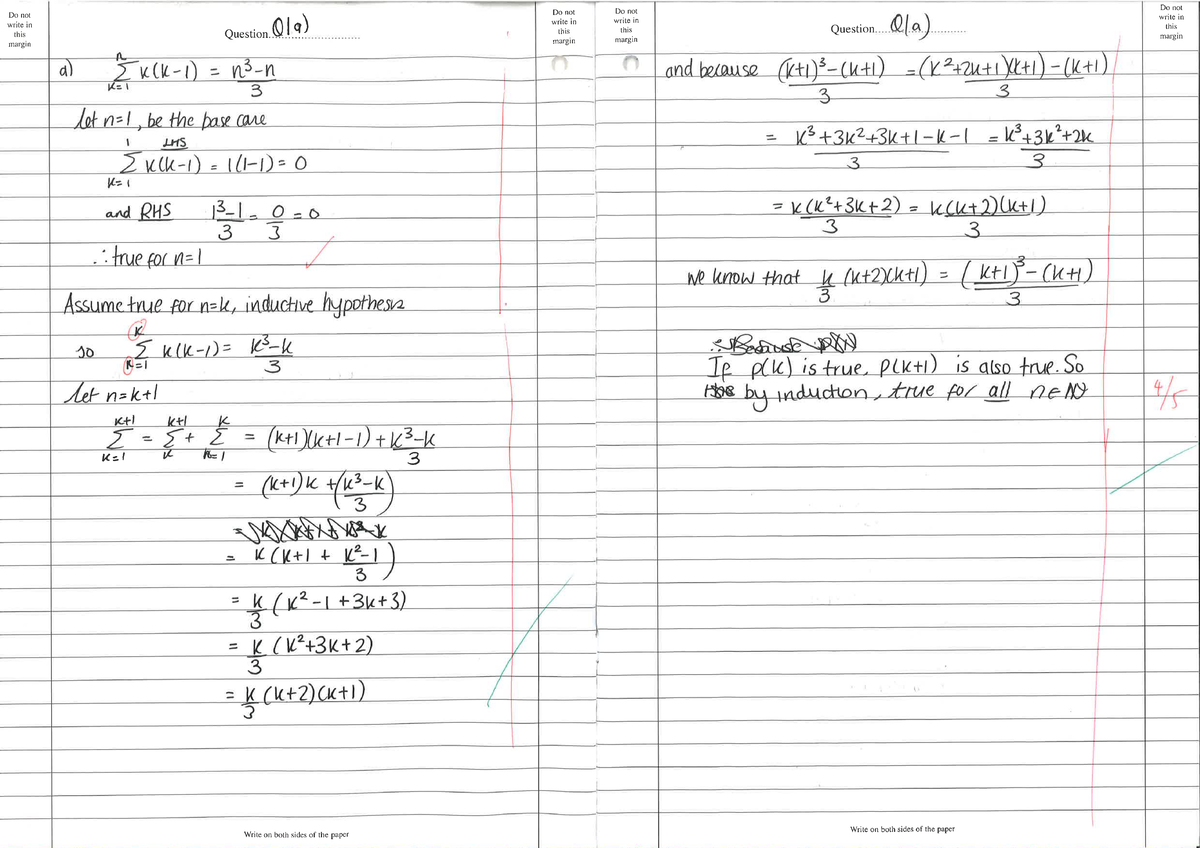 Do not write in this margin
Question Q1a)
Do not write in this margin
a) n Σ k=1 k(k-1) = n³-n / 3
let n=1, be the base case
LHS
1 Σ k=1 k(k-1) = 1(1-1) = 0
and RHS 1³-1 / 3 = 0 / 3 = 0
∴ true for n=1 ✓
Assume true for n=k, inductive hypothesis
so k Σ k=1 k(k-1) = k³-k / 3
let n=k+1
k+1 Σ k=1 = k+1 Σ k + k Σ k=1 = (k+1)(k+1-1) + k³-k / 3
= (k+1)k + (k³-k / 3)
= k(k+1 + k²-1 / 3)
= k/3 (k²-1+3k+3)
= k/3 (k²+3k+2)
= k/3 (k+2)(k+1)
Write on both sides of the paper
Do not write in this margin
Question Q1a)
Do not write in this margin
and because (k+1)³-(k+1) / 3 = (k²+2k+1)(k+1)-(k+1) / 3
= k³+3k²+3k+1-k-1 / 3 = k³+3k²+2k / 3
= k(k²+3k+2) / 3 = k(k+2)(k+1) / 3
we know that k/3 (k+2)(k+1) = (k+1)³-(k+1) / 3
If P(k) is true, P(k+1) is also true. So
by induction, true for all n∈N
4/5
Write on both sides of the paper